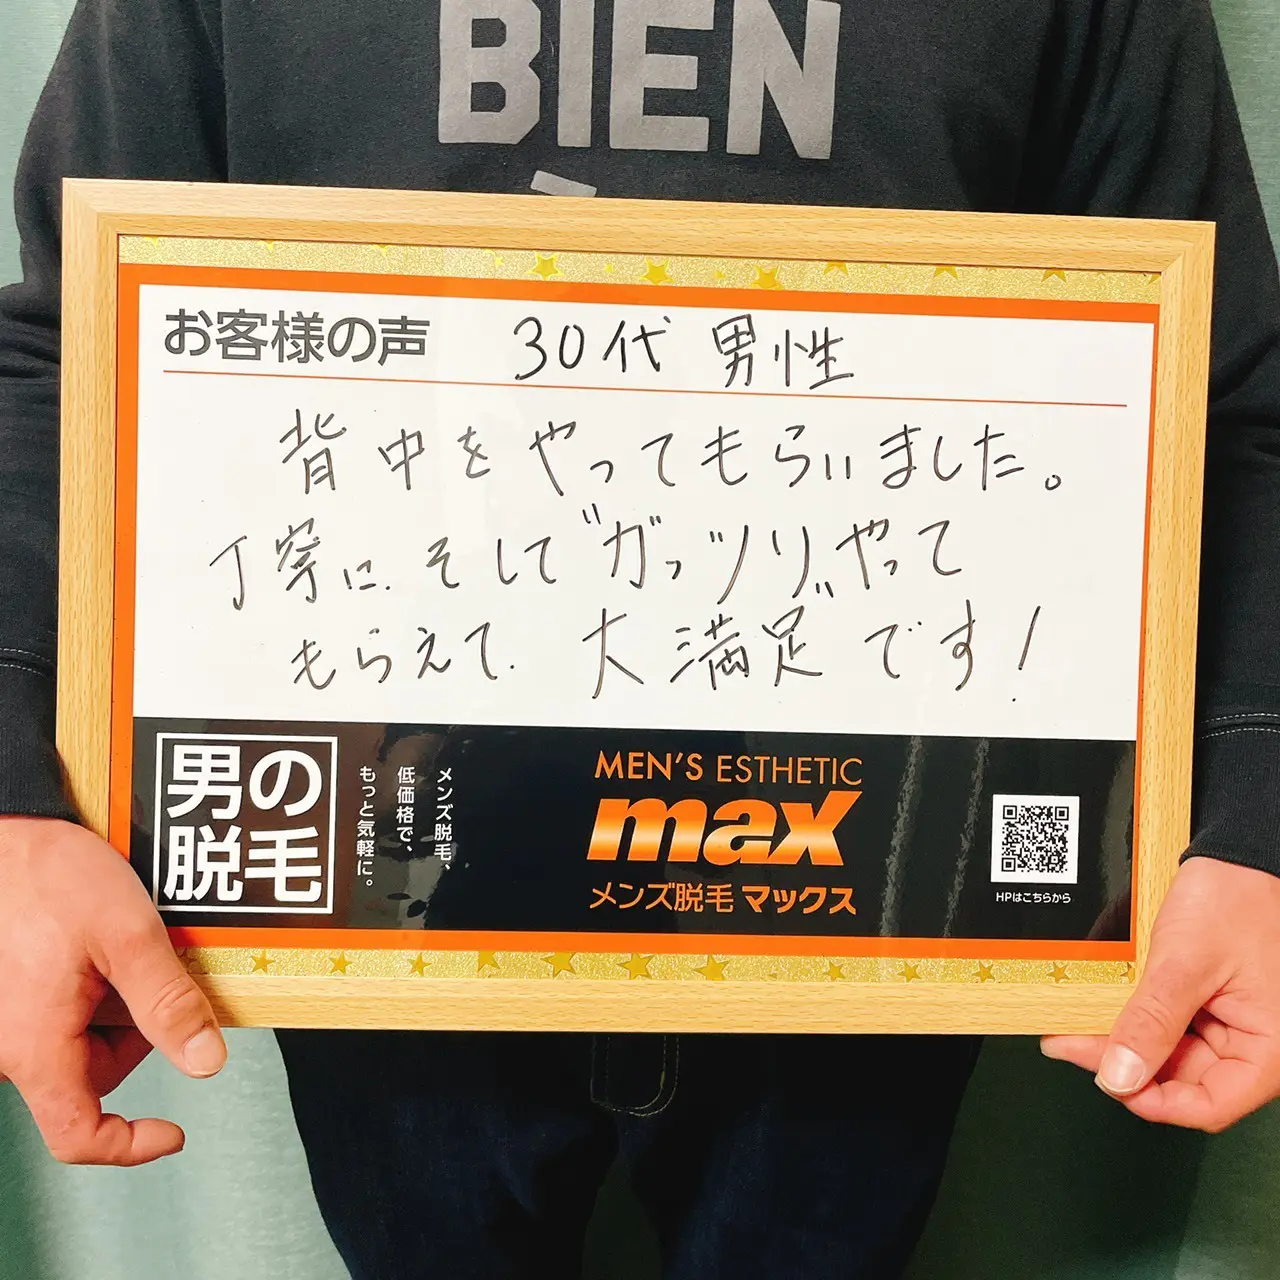 BIEN
お客様の声 30代 男性
背中をやってもらいました。
丁寧に、そして"ガッツリ"やって
もらえて、大満足です!
男の
脱毛
メンズ脱毛、
低価格で、
もっと気軽に。
MEN'S ESTHETIC
max
メンズ脱毛 マックス
HPはこちらから